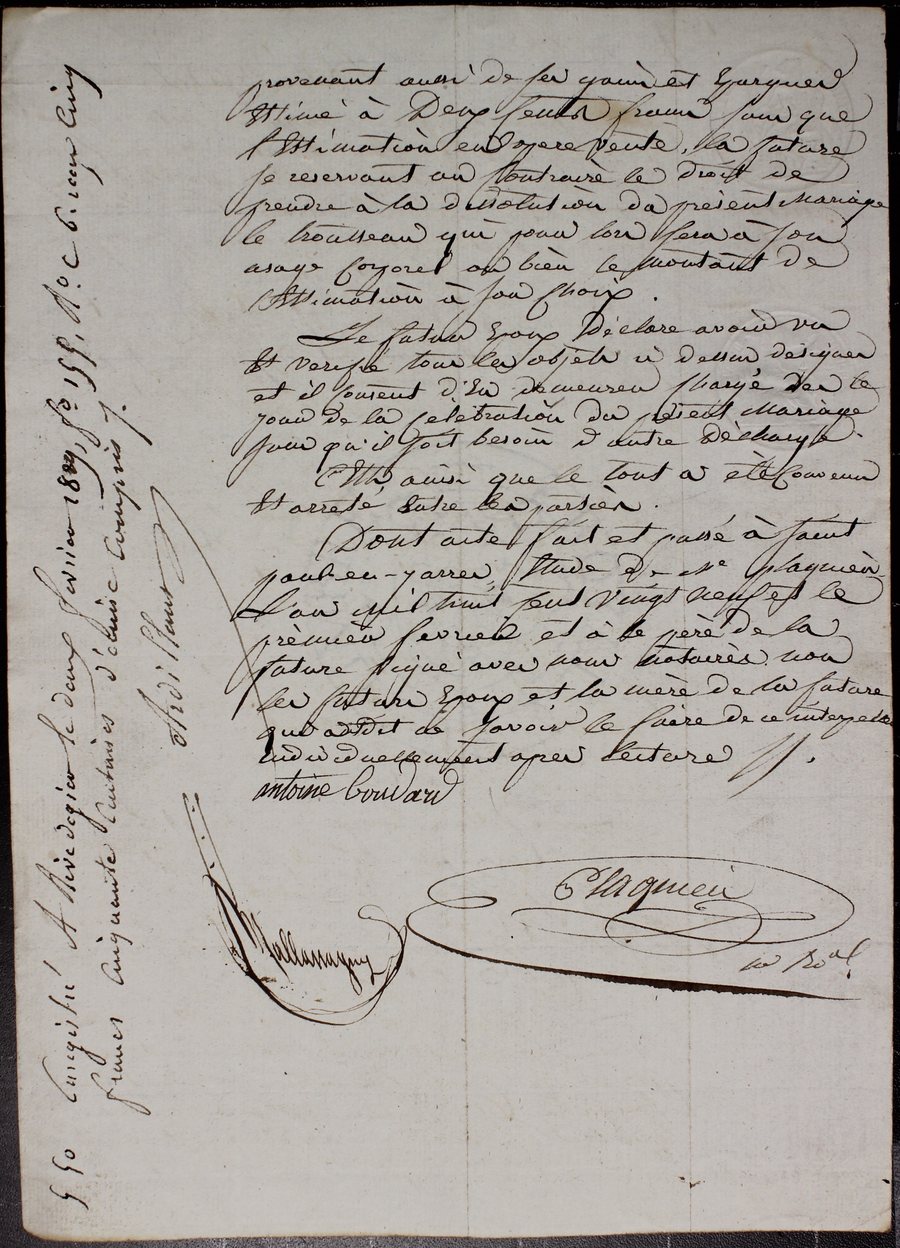 provenant aussi de ses gains et Epargnes
Estimé à Deux Cents francs sans que
l'Estimation en opere vente, la future
se reservant au Contraire le droit de
prendre à la dissolution du présent Mariage
le trousseau qui pour lors sera à son
usage Corporel ou bien le montant de
l'Estimation à son Choix.
Le futur Epoux Déclare avoir vu
Et verifié tous les objets ci dessus désignés
et il Consent d'En demeurer Chargé dès le
jour de la Célébration du présent Mariage
sans qu'il soit besoin d'autre Décharge.
C'Est ainsi que le tout a été Convenu
Et arreté Entre les parties.
Dont acte fait et passé à Saint
paul-en-jarrez, Etude de Me plagnieu
L'an Mil huit Cent Vingt neuf et le
prémier fevrier et à le père de la
future signé avec nous notaires non
les futurs Epoux et la mère de la future
qui ont dit ne savoir le faire de ce interpellés
individuellement apres lecture
antoine Boudard
Plagnieu
no Roal
Enregistré A Rive de gier le deux fevrier 1829, fo 155, Ro. C 6. reçu Cinq
francs Cinquante Centimes dixme Compris
Ardillant
5 50